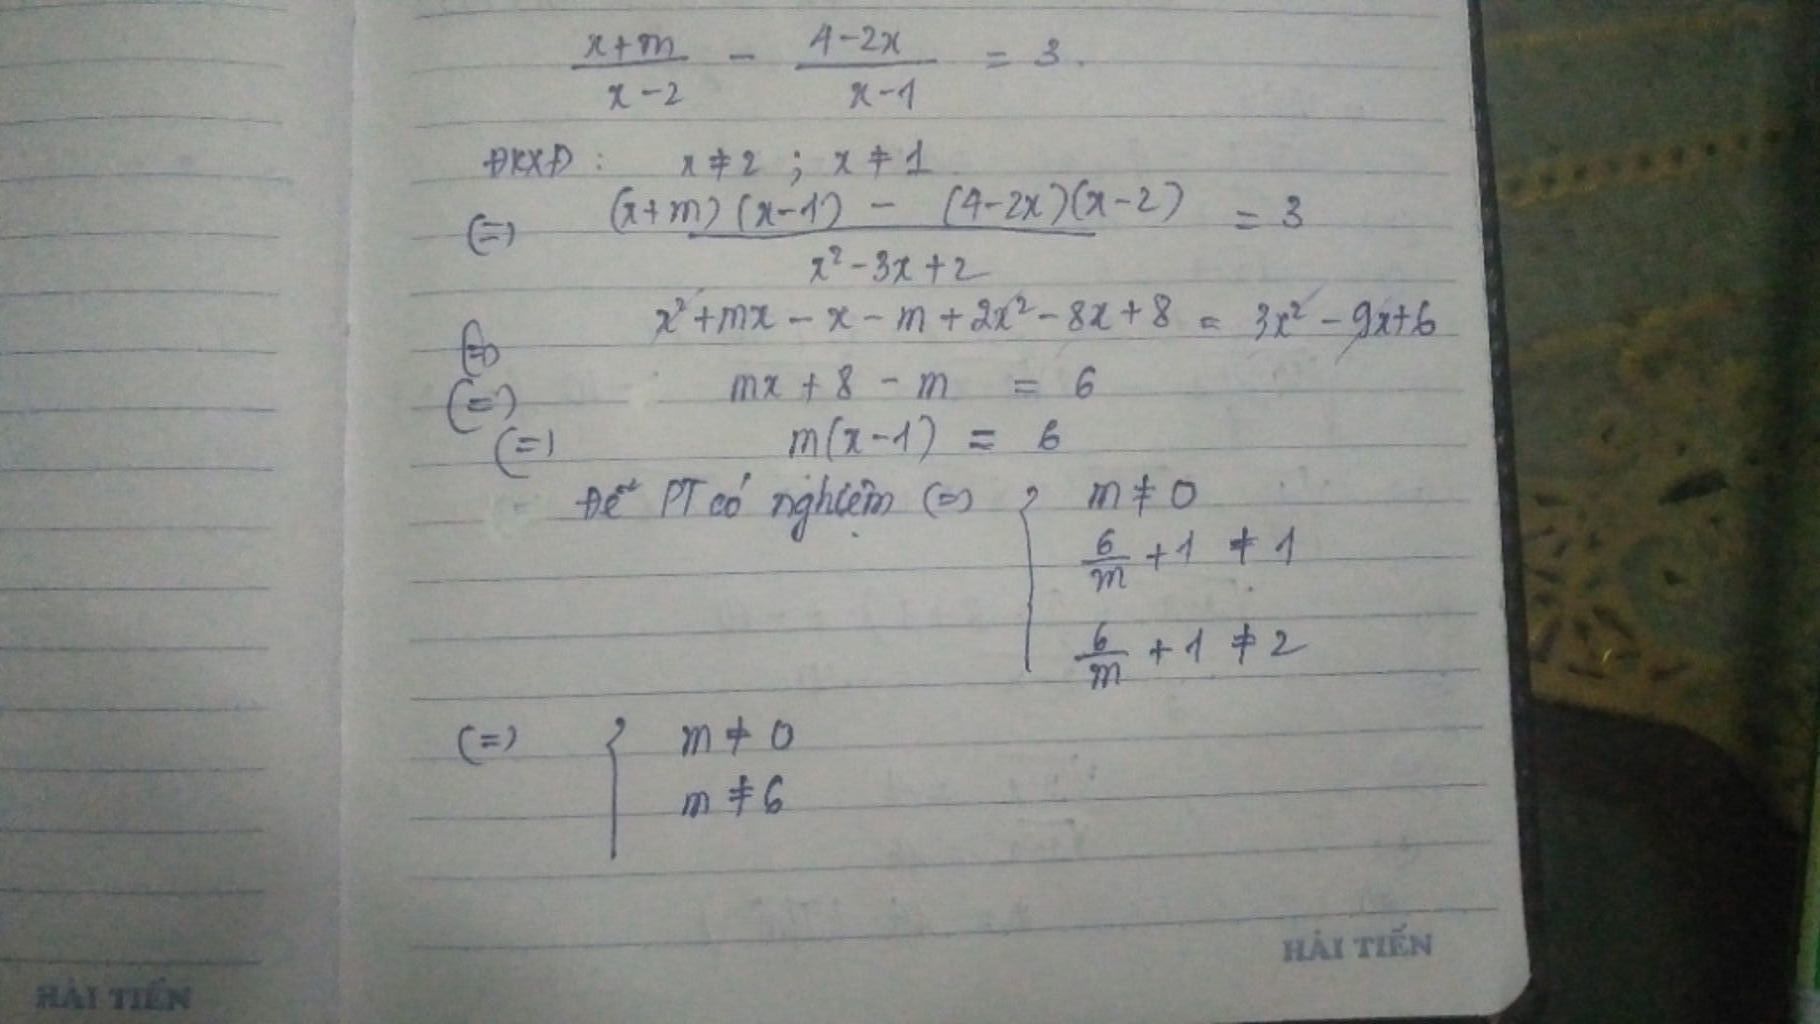 x+m/x-2 - 4-2x/x-1 = 3.
ĐKXĐ: x ≠ 2 ; x ≠ 1
(=) (x+m)(x-1) - (4-2x)(x-2) / x²-3x+2 = 3
(=) x²+mx-x-m+2x²-8x+8 = 3x²-9x+6
(=) mx+8-m = 6
(=) m(x-1) = 6
Để PT có nghiệm (=) { m ≠ 0
6/m + 1 ≠ 1
6/m + 1 ≠ 2
(=) { m ≠ 0
m ≠ 6
HẢI TIẾN
HẢI TIẾN